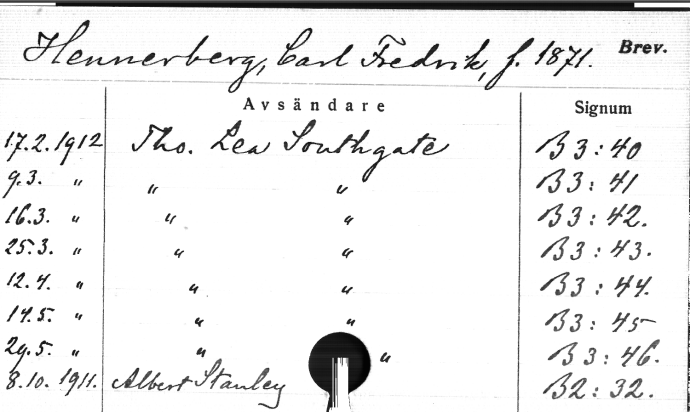 Hennerberg, Carl Fredrik, f. 1871. Brev.
Avsändare Signum
17.2.1912 Tho. Lea Southgate B3:40
9.3. " " " B3:41
16.3. " " " B3:42.
25.3. " " " B3:43.
12.4. " " " B3:44.
14.5. " " " B3:45
29.5. " " " B3:46.
8.10.1911. Albert Stanley B2:32.